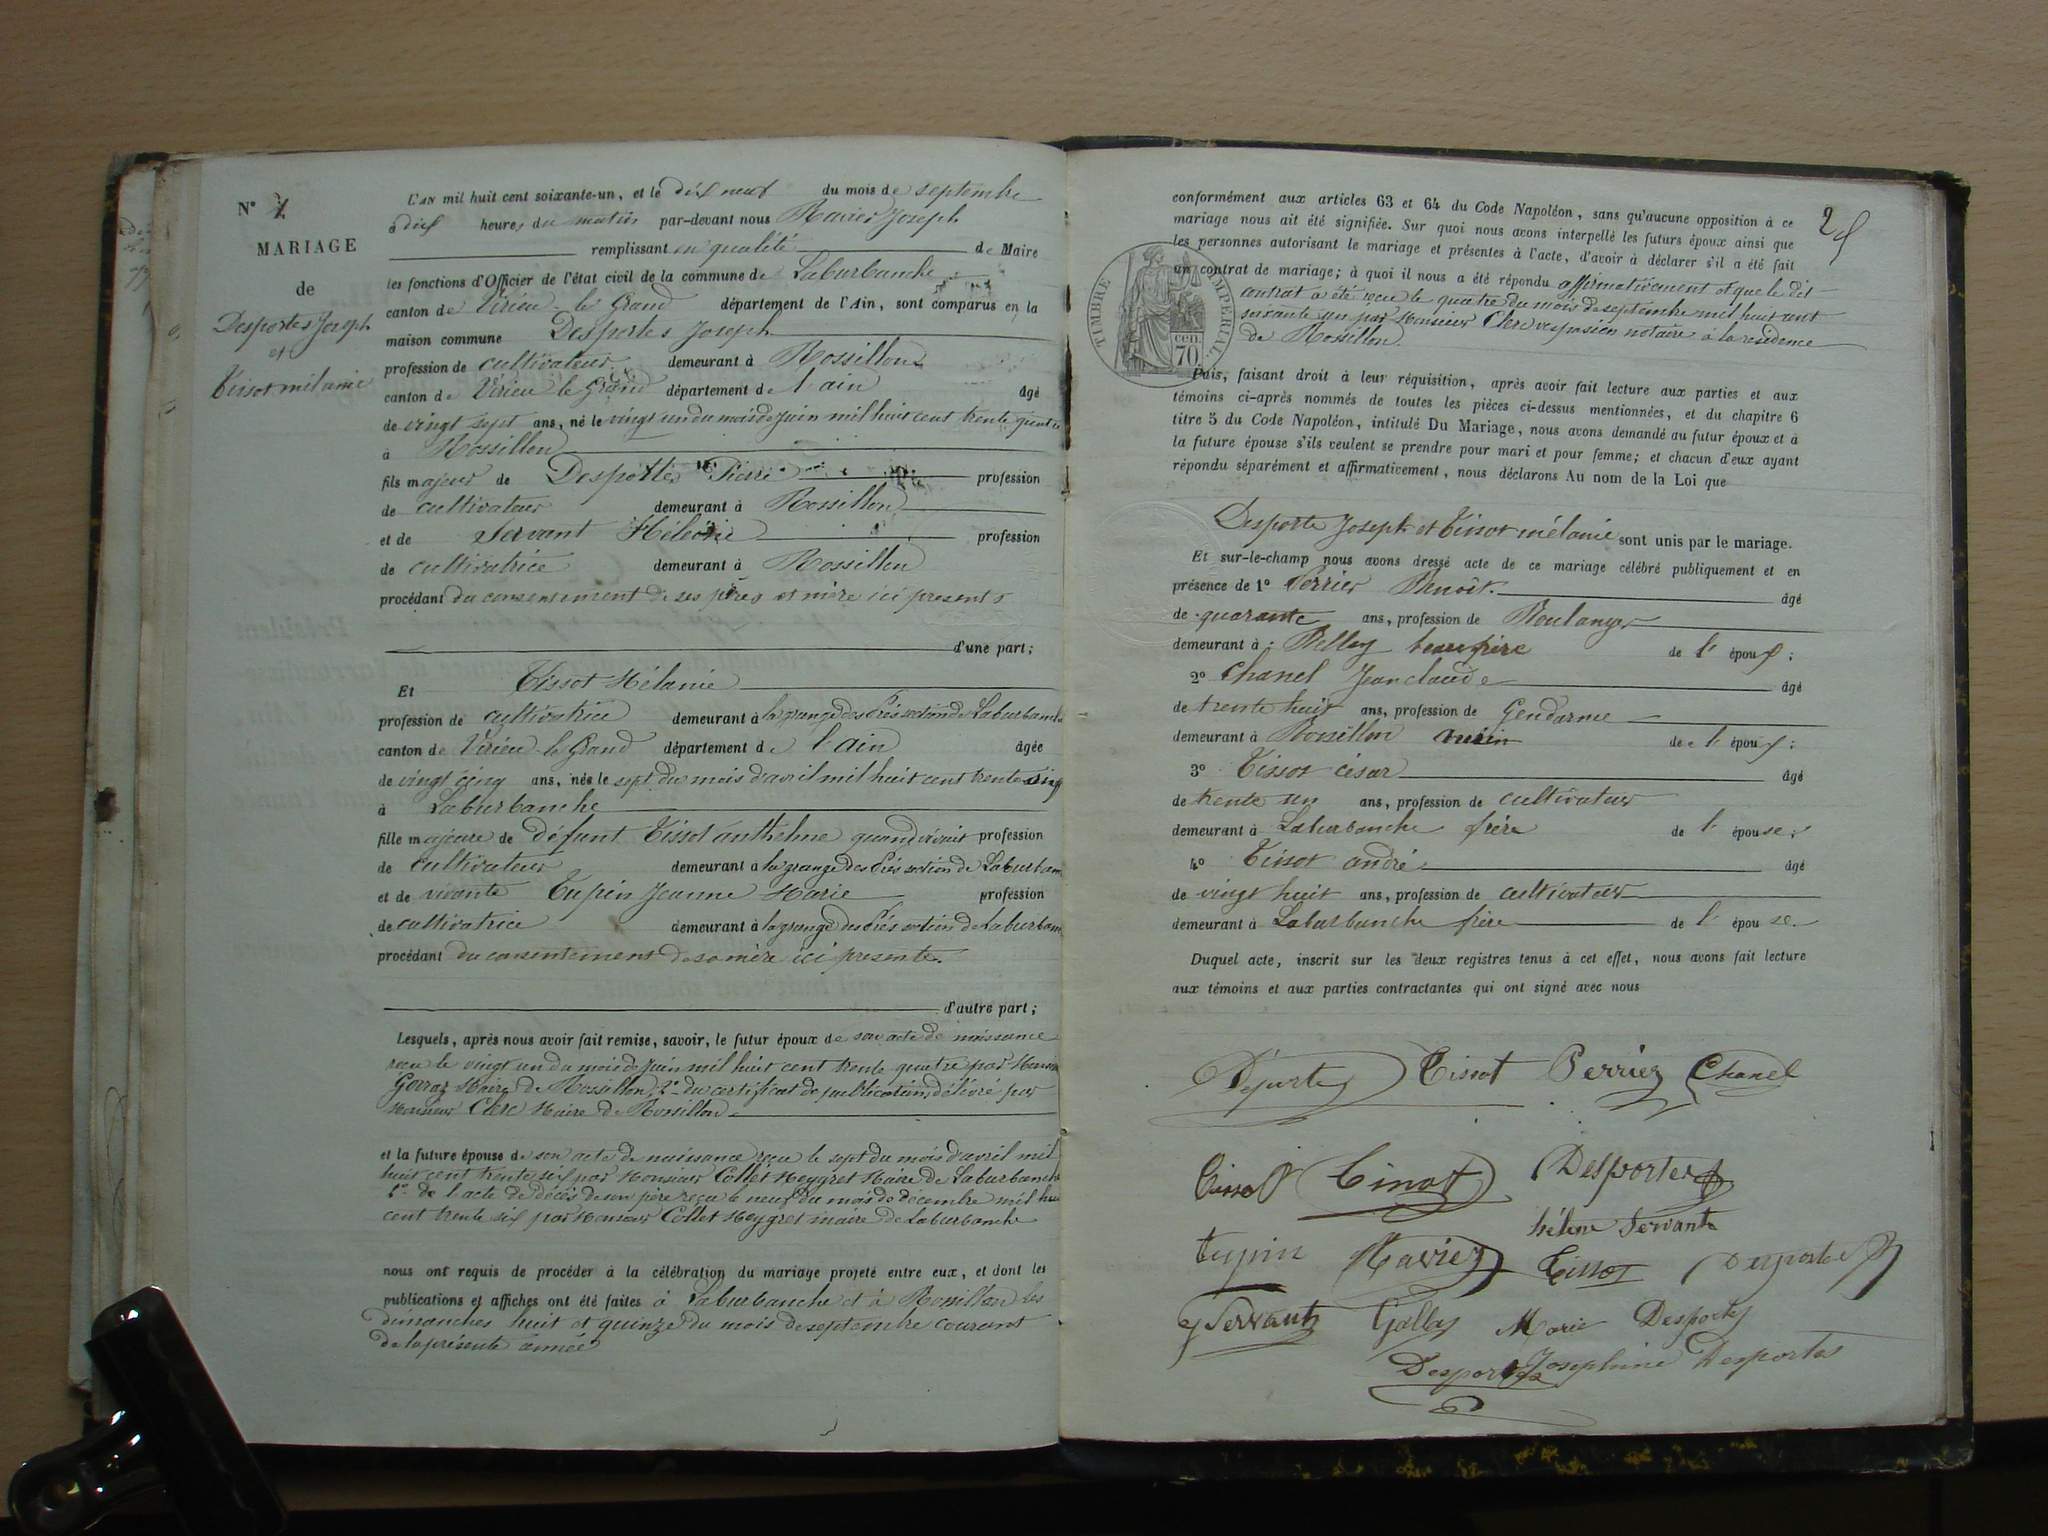 MARIAGE
de
Desportes Joseph
et
Tissot mélanie
L'AN mil huit cent soixante-un, et le dix neuf du mois de septembre
à dix heures du matin par-devant nous Ravier Joseph
remplissant en qualité de Maire
les fonctions d'Officier de l'état civil de la commune de Laburbanche
canton de Virieu-le Grand département de l'Ain, sont comparus en la
maison commune Desportes Joseph
profession de cultivateur demeurant à Rossillon
canton de Virieu le Grand département de l'ain âgé
de vingt sept ans, né le vingt un du mois de juin mil huit cent trente quatre
à Rossillon
fils majeur de Desportes Pierre profession
de cultivateur demeurant à Rossillon
et de Servant Hélène profession
de cultivatrice demeurant à Rossillon
procédant du consentement de ses père et mère ici présents
d'une part;
Et Tissot Mélanie
profession de cultivatrice demeurant à la grange des Prés section de Laburbanche
canton de Virieu-le Grand département de l'ain âgée
de vingt cinq ans, née le sept du mois d'avril mil huit cent trente
à Laburbanche
fille majeure de défunt Tissot anthelme quand vivait profession
de cultivateur demeurant à la grange des Prés section de Laburban
et de vivante Tupin Jeanne Marie profession
de cultivatrice demeurant à la grange des Prés section de Laburban
procédant du consentement de sa mère ici présente.
d'autre part;
Lesquels, après nous avoir fait remise, savoir, le futur époux de son acte de naissance
reçu le vingt un du mois de juin mil huit cent trente quatre par Monsieur
Gorraz Maire de Rossillon, 2º du certificat de publication, délivré par
Monsieur Clerc Maire de Rossillon
et la future épouse de son acte de naissance reçu le sept du mois d'avril mil
huit cent trente six par Monsieur Collet Meygret Maire de Laburbanche
de l'acte de décès de son père reçu le neuf du mois de décembre mil huit
cent trente six par Monsieur Collet Meygret maire de Laburbanche
nous ont requis de procéder à la célébration du mariage projeté entre eux, et dont les
publications et affiches ont été faites à Laburbanche et à Rossillon les
dimanches huit et quinze du mois de septembre courant
de la présente année
2
conformément aux articles 63 et 64 du Code Napoléon, sans qu'aucune opposition à ce
mariage nous ait été signifiée. Sur quoi nous avons interpellé les futurs époux ainsi que
les personnes autorisant le mariage et présentes à l'acte, d'avoir à déclarer s'il a été fait
un contrat de mariage; à quoi il nous a été répondu affirmativement et que le dit
contrat a été reçu le quatre du mois de septembre mil huit cent
soixante un par Monsieur Clerc vespasien notaire à la résidence
de Rossillon
TIMBRE IMPERIAL
cen.
70
Puis, faisant droit à leur réquisition, après avoir fait lecture aux parties et aux
témoins ci-après nommés de toutes les pièces ci-dessus mentionnées, et du chapitre 6
titre 5 du Code Napoléon, intitulé Du Mariage, nous avons demandé au futur époux et à
la future épouse s'ils veulent se prendre pour mari et pour femme; et chacun d'eux ayant
répondu séparément et affirmativement, nous déclarons Au nom de la Loi que
Desporte Joseph et Tissot mélanie sont unis par le mariage.
Et sur-le-champ nous avons dressé acte de ce mariage célébré publiquement et en
présence de 1º Perrier Benoît âgé
de quarante ans, profession de Boulanger
demeurant à Belley beau frère de l'époux;
2º Chanel Jean claude âgé
de trente huit ans, profession de Gendarme
demeurant à Rossillon de l'époux;
3º Tissot césar âgé
de trente un ans, profession de cultivateur
demeurant à Laburbanche frère de l'épouse;
4º Tissot andré âgé
de vingt huit ans, profession de cultivateur
demeurant à Laburbanche frère de l'épouse.
Duquel acte, inscrit sur les deux registres tenus à cet effet, nous avons fait lecture
aux témoins et aux parties contractantes qui ont signé avec nous
Desportes Tissot Perrier Chanel
Tissot Tissot Desportes
hélène Servant
Tupin Ravier Tissot Desportes
Servant Marie Desportes
Desportes Josephine Desportes